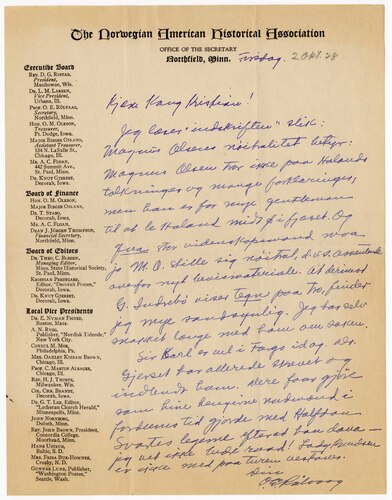 The Norwegian American Historical Association
OFFICE OF THE SECRETARY
Northfield, Minn.
Tirsdag. 2 Okt. 28
Executive Board
REV. D. G. RISTAD,
President,
Manitowoc, Wis.
DR. L. M. LARSEN,
Vice President,
Urbana, Ill.
PROF. O. E. RÖLVAAG,
Secretary,
Northfield, Minn.
HON. O. M. OLESON,
Treasurer,
Ft. Dodge, Iowa.
MAJOR BIRGER OSLAND,
Assistant Treasurer,
134 N. LaSalle St.,
Chicago, Ill.
MR. A. C. FLOAN,
442 Summit Ave.,
St. Paul, Minn.
DR. KNUT GJERSET,
Decorah, Iowa.
Board of Finance
HON. O. M. OLESON,
MAJOR BIRGER OSLAND,
DR. T. STABO,
Decorah, Iowa.
MR. A. C. FLOAN,
DEAN J. JÖRGEN THOMPSON,
Financial Secretary,
Northfield, Minn.
Board of Editors
DR. THEO. C. BLEGEN,
Managing Editor,
Minn. State Historical Society,
St. Paul, Minn.
KRISTIAN PRESTGARD,
Editor, "Decorah Posten,"
Decorah, Iowa.
DR. KNUT GJERSET,
Decorah, Iowa.
Local Vice Presidents
DR. E. NYMAN FIGVED,
Boston, Mass.
A. N. RYGG,
Publisher, "Nordisk Tidende,"
New York City.
CONSUL M. MOE,
Philadelphia, Pa.
MRS. OAKLEY BROWN BRACKEN,
Chicago, Ill.
PROF. C. MARTIN ALSAGER,
Chicago, Ill.
REV. H. J. THORPE,
Milwaukee, Wis.
MR. CHR. BRANDT,
Decorah, Iowa.
DR. G. T. LEE, Editor
"Lutheran Church Herald,"
Minneapolis, Minn.
JOHN NORTHROP,
Duluth, Minn.
REV. JOHN BROWN, President,
Concordia College,
Moorhead, Minn.
HANS USTRUD,
Baltic, S. D.
MRS. FRIDA BUE-HOMNES,
Crosby, N. D.
GUNNAR LUND, Publisher,
"Washington Posten,"
Seattle, Wash.
Kjære Kong Kristian!
Jeg læser "indskriften" slik:
Magnus Olsens nøitralitet betyr:
Magnus Olsen tror ikke paa Holands
tolkninger og mange forklaringer,
men han er for mye gentleman
til at le Holand midt i fjæset. Og
som stor videnskapsmand maa
jo M. O. stille sig nøitral, d.v.s. avventende
overfor nyt bevismateriale. At derimot
G. Indrebø viser tegn paa tro, finder
jeg mye sandsynlig. Jeg har selv
snakket længe med ham om saken.
Sir Carl er vel i Fargo idag, der.
Gjerset har allerede skrevet og
indbudt ham. Dere faar gjøre
som hine kvinner nedward i
fordums tid gjorde med Halfdan
Svartes legeme efterat han døde –
jeg vet ikke bedre raad! Lady Knudsen
er ikke med paa turen vestover.
Din
O E Rölvaag